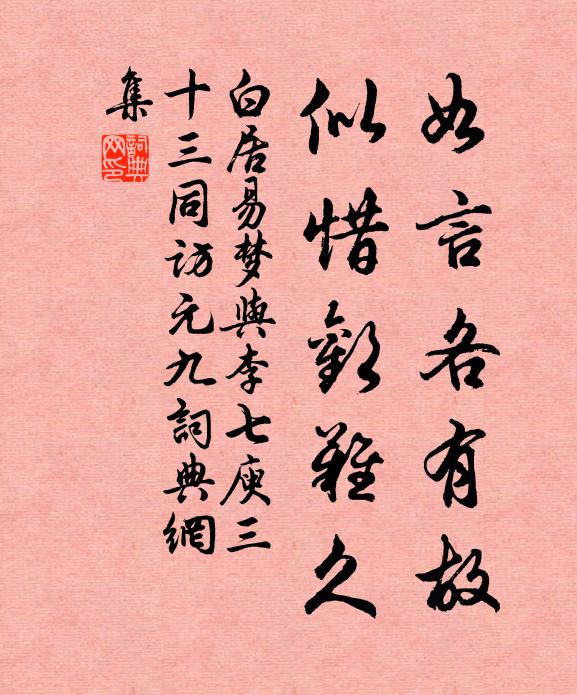 如言各有故
似惜歡難久
白居易梦與李七庾三
十三同訪元九詞典網
集
詞典
网印